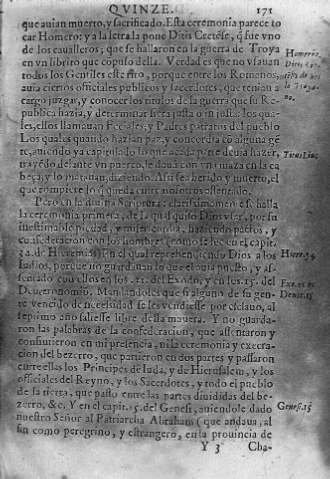 QVINZE. 171
que auian muerto, y sacrificado. Esta ceremonia parece to
car Homero: y a la letra la pone Ditis Cretése, q̃ fue vno
de los caualleros, que se hallaron en la guerra de Troya
en vn librito que cópuso della. Verdad es que no vsauan
todos los Gentiles este rito, porque entre los Romanos,
auia ciertos officiales publicos y sacerdotes, que tenian a
cargo juzgar, y conocer los titulos de la guerra que su Re
publica hazia, y determinar si era justa o injusta: los qua
les, ellos llamauan Feciales, y Padres patratos del pueblo
Los quales quando hazian paz, y concordia có alguna gé
te, auiendo ya capitulado lo que
trayédo delante vn puerco, le daua con vna maza en la ca
beça, y lo mataua, diziendo. Assi sea herido, y muerto, el
que rompiere lo q̃ queda entre nosotros
Pero en la diuina Scriptura: clarissimamente se halla
la ceremonia primera, de la qual quiso Dios vsar, por su
inestimable piedad, y misericordia, haziendo pactos, y
confederacion con los hombres (como se lee en el capit.
34. de Hieremias) en el qual reprehendiendo Dios a los
Iudios, porque no guardauan lo que el auia puesto, y as-
sentado con ellos en los .21. del Exodo, y en los .15. del
Deuteronomio. Mandandoles que si alguno de su gen-
te vencido de necessidad se les vendiesse por esclauo, al
septimo año saliesse libre della manera. Y no guarda-
ron las palabras de la confederacion, que assentaron y
consintieron en mi presencia, ni la ceremonia y execra-
cion del bezerro, que partieron en dos partes y passaron
entre ellas los Principes de Iuda, y de Hierusalem, y los
officiales del Reyno, y los Sacerdotes, y todo el pueblo
de la tierra, que passo entre las partes diuididas del be-
zerro, &c. Y en el capit. 15. del Genesi, auiendole dado
nuestro Señor al Patriarcha Abraham (que andaua, al
fin como peregrino, y estrangero, en la prouincia de
Y 3 Cha-
Homero,
Tito Liuio
Hiere. 34
Exo. 21
Deut. 15
Genes. 15